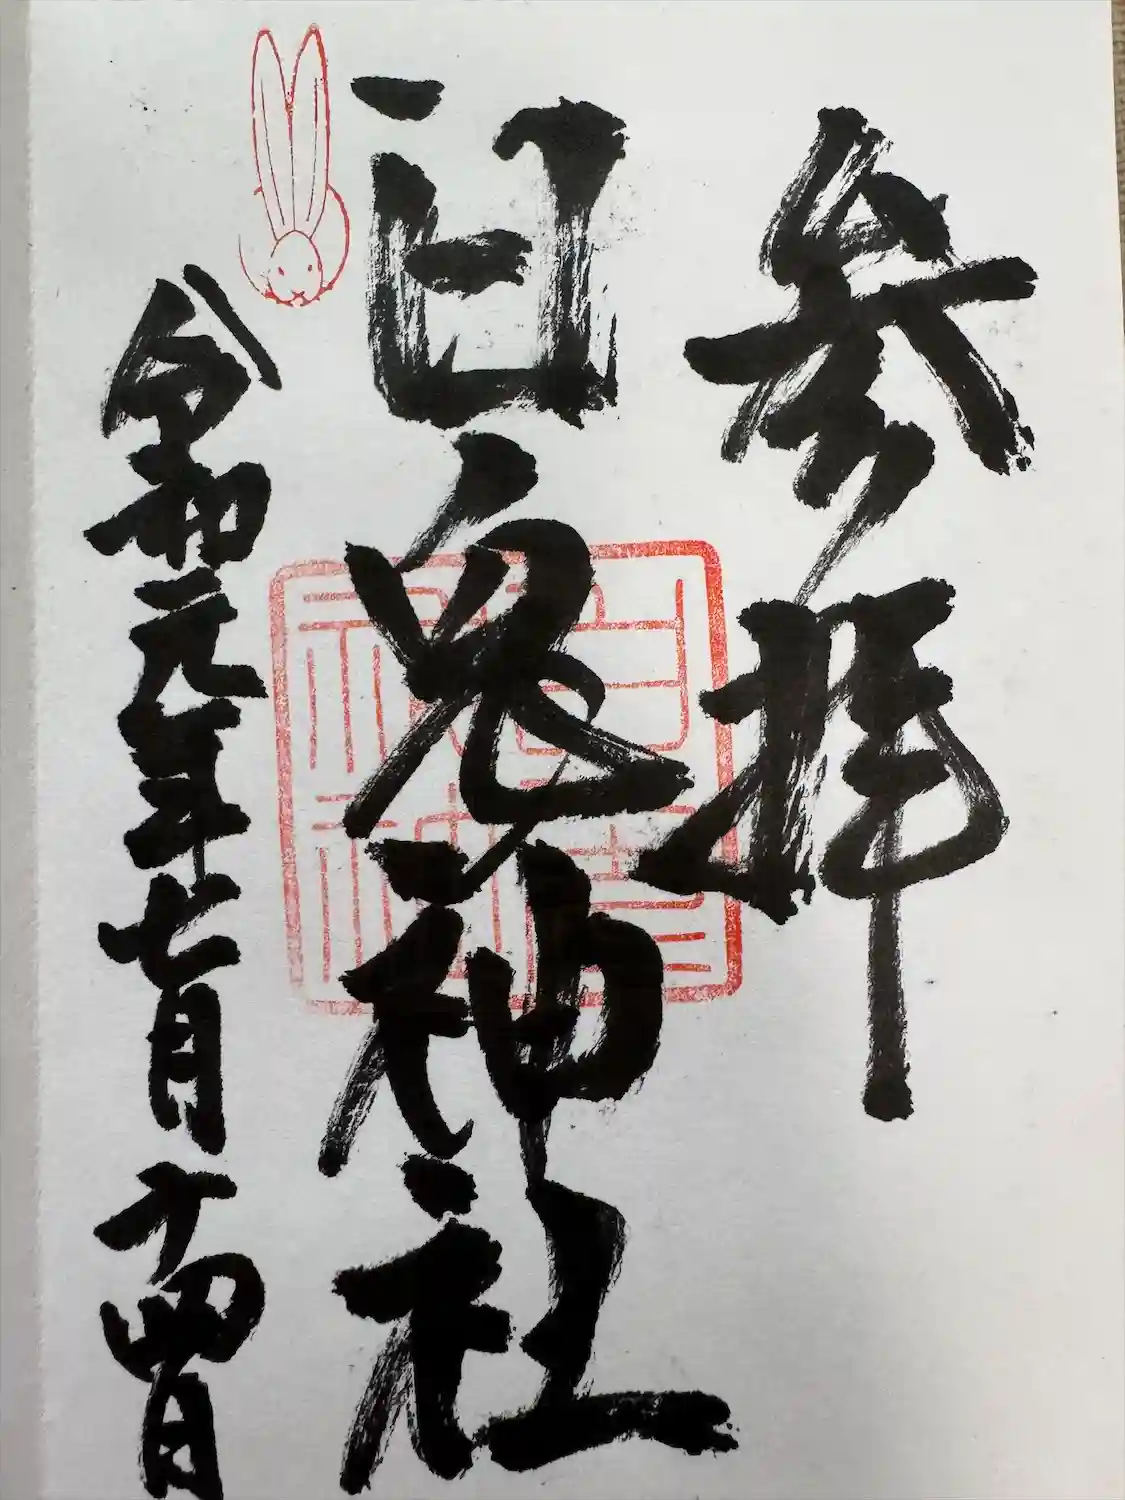 参拝
白兎神社
令和元年七月十四日